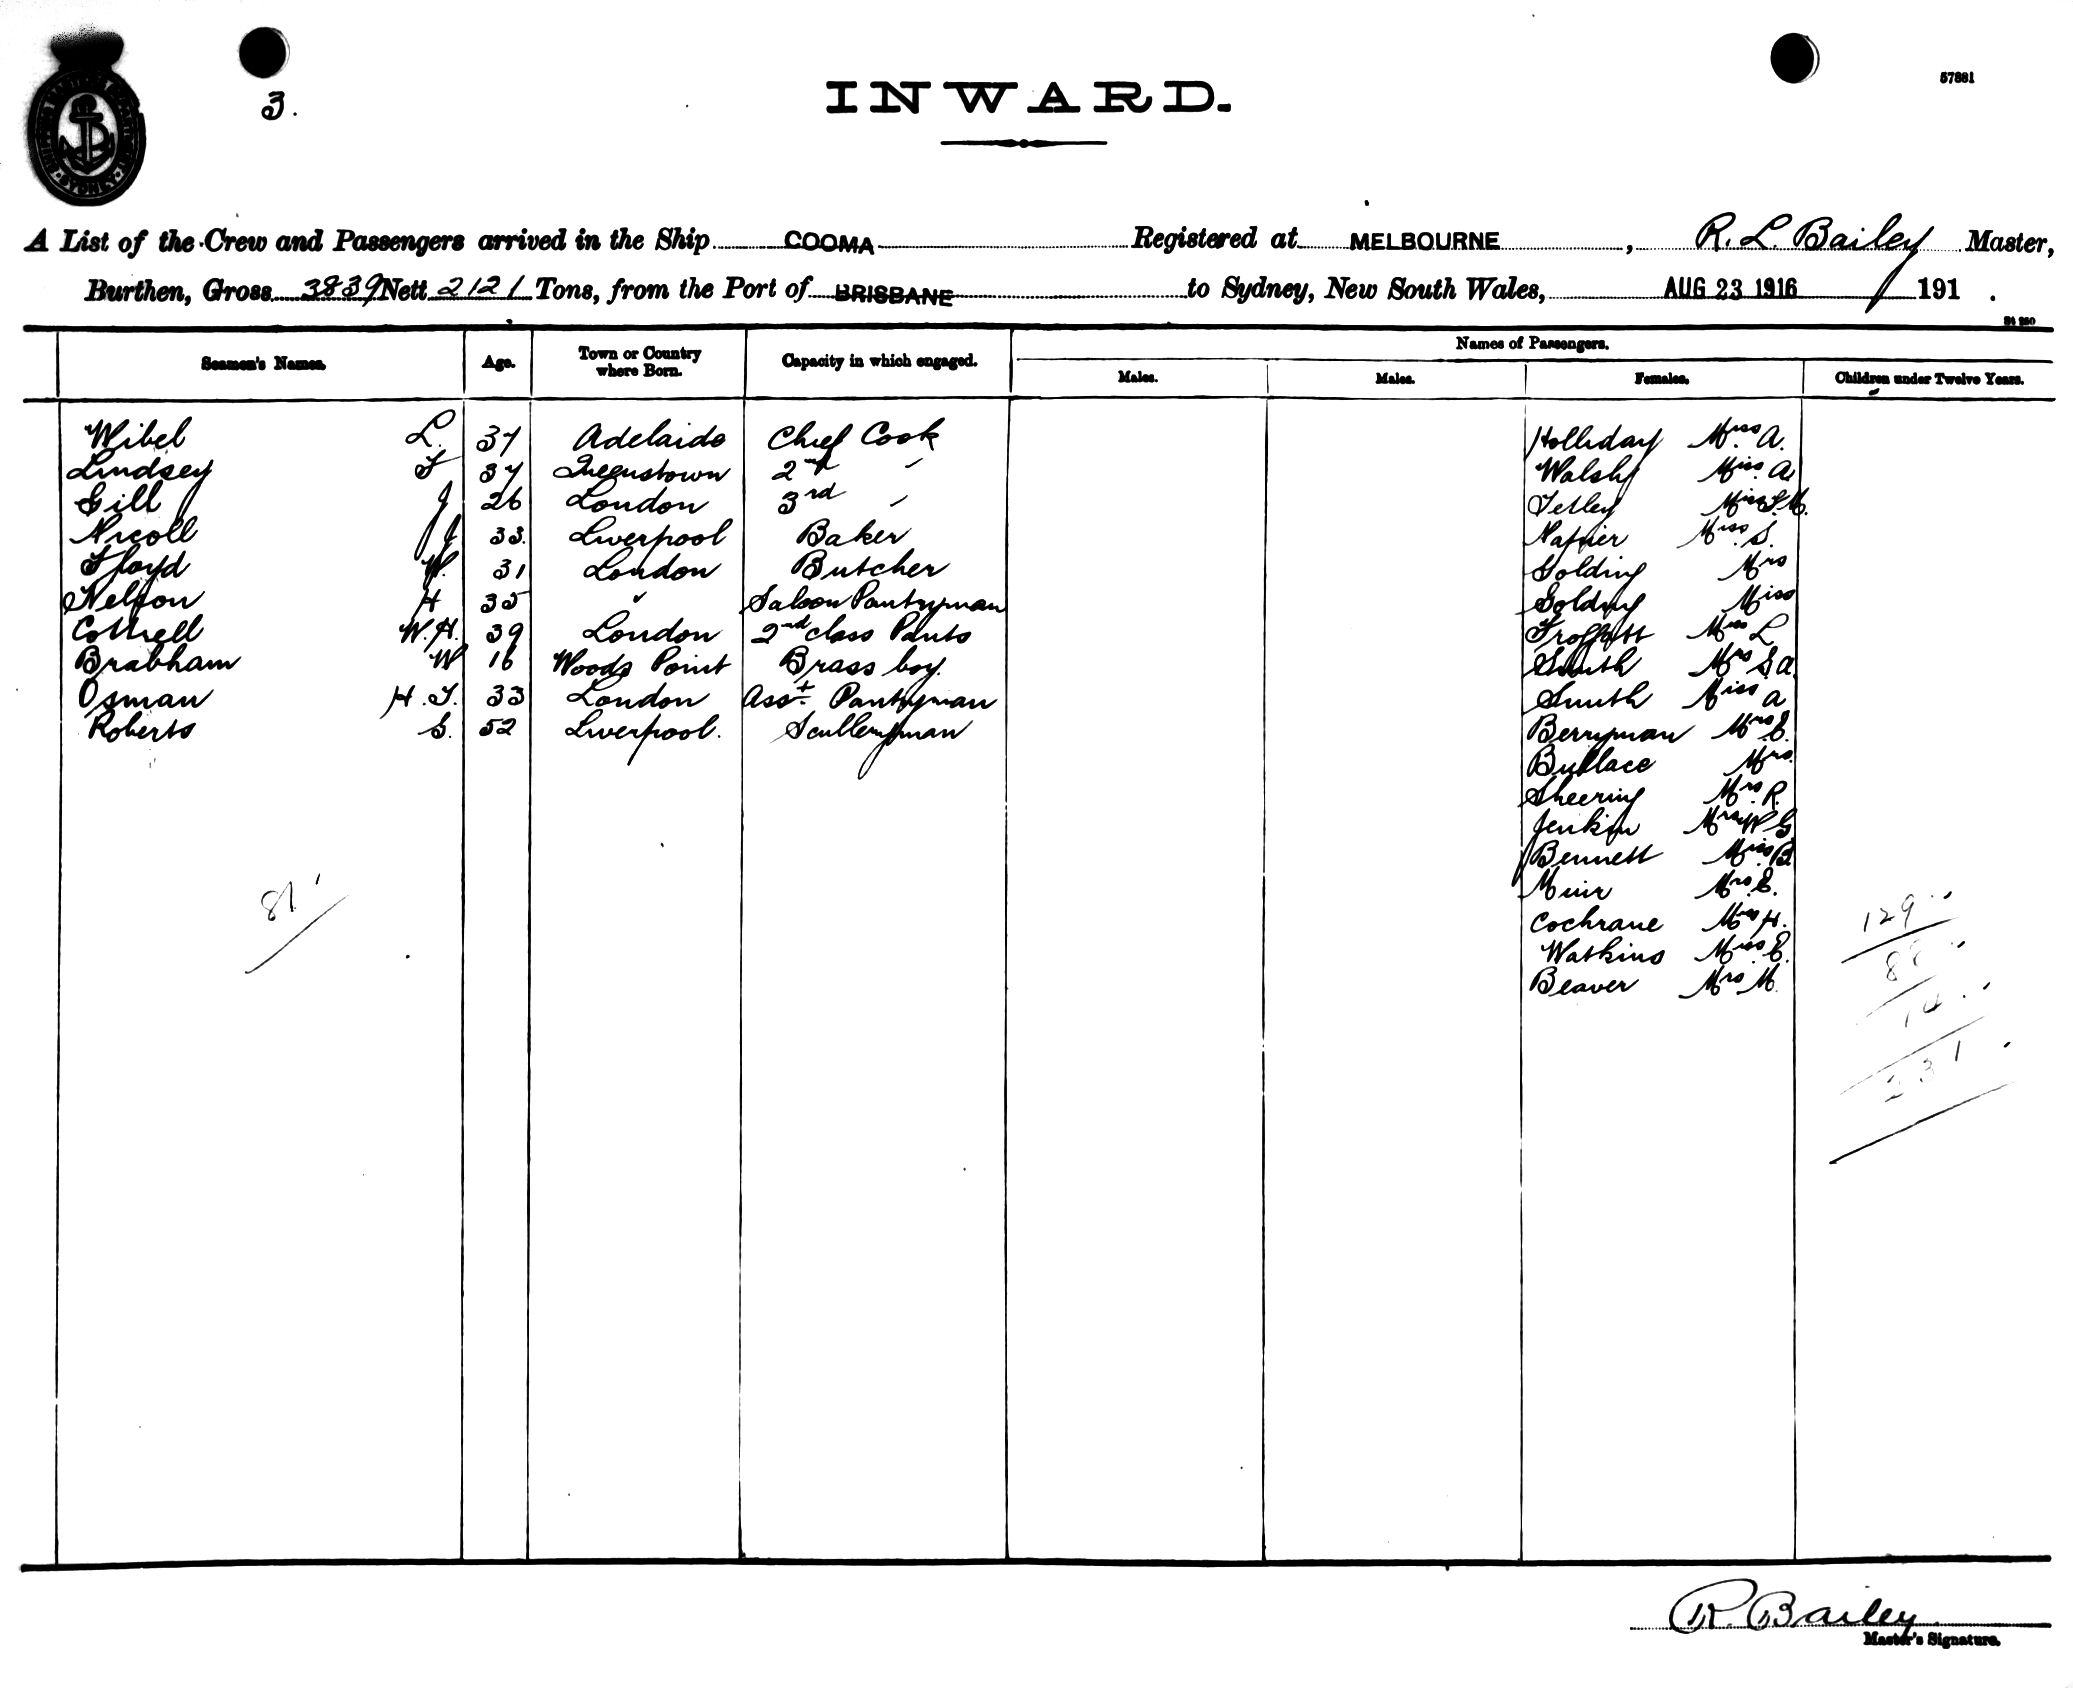 3.
INWARD.
57881
A List of the Crew and Passengers arrived in the Ship COOMA Registered at MELBOURNE, R. L. Bailey Master,
Burthen, Gross 3839 Nett 2121 Tons, from the Port of BRISBANE to Sydney, New South Wales, AUG 23 1916 191 .
Seamen's Names. Age. Town or Country where Born. Capacity in which engaged. Names of Passengers.
Males. Males. Females. Children under Twelve Years.
Wibel L. 37 Adelaide Chief Cook Holliday Miss A.
Lindsey F 37 Queenstown 2nd " Walsh Miss A
Gill J 26 London 3rd " Tetley Miss F.M.
Nicoll J 33. Liverpool Baker Napier Miss S.
Floyd W. 31 London Butcher Golding Mrs
Nelson H 35 " Saloon Pantryman Golding Miss
Cottrell W.H. 39 London 2nd class Pants Miss L
Brabham W 16 Woods Point Brass boy. Smith Mrs S.A.
Osman H.T. 33 London Asst. Pantryman Smith Miss A
Roberts S. 52 Liverpool. Sculleryman Berryman Mrs E.
Bullace Mrs.
Sheering Mrs R.
Jenkin Mrs W.G
Bennett Miss B.
81
Muir Mrs E.
Cochrane Miss H. 129
Watkins Miss E.
88
Beaver Mrs M.
14
231
R. Bailey
Master's Signature.